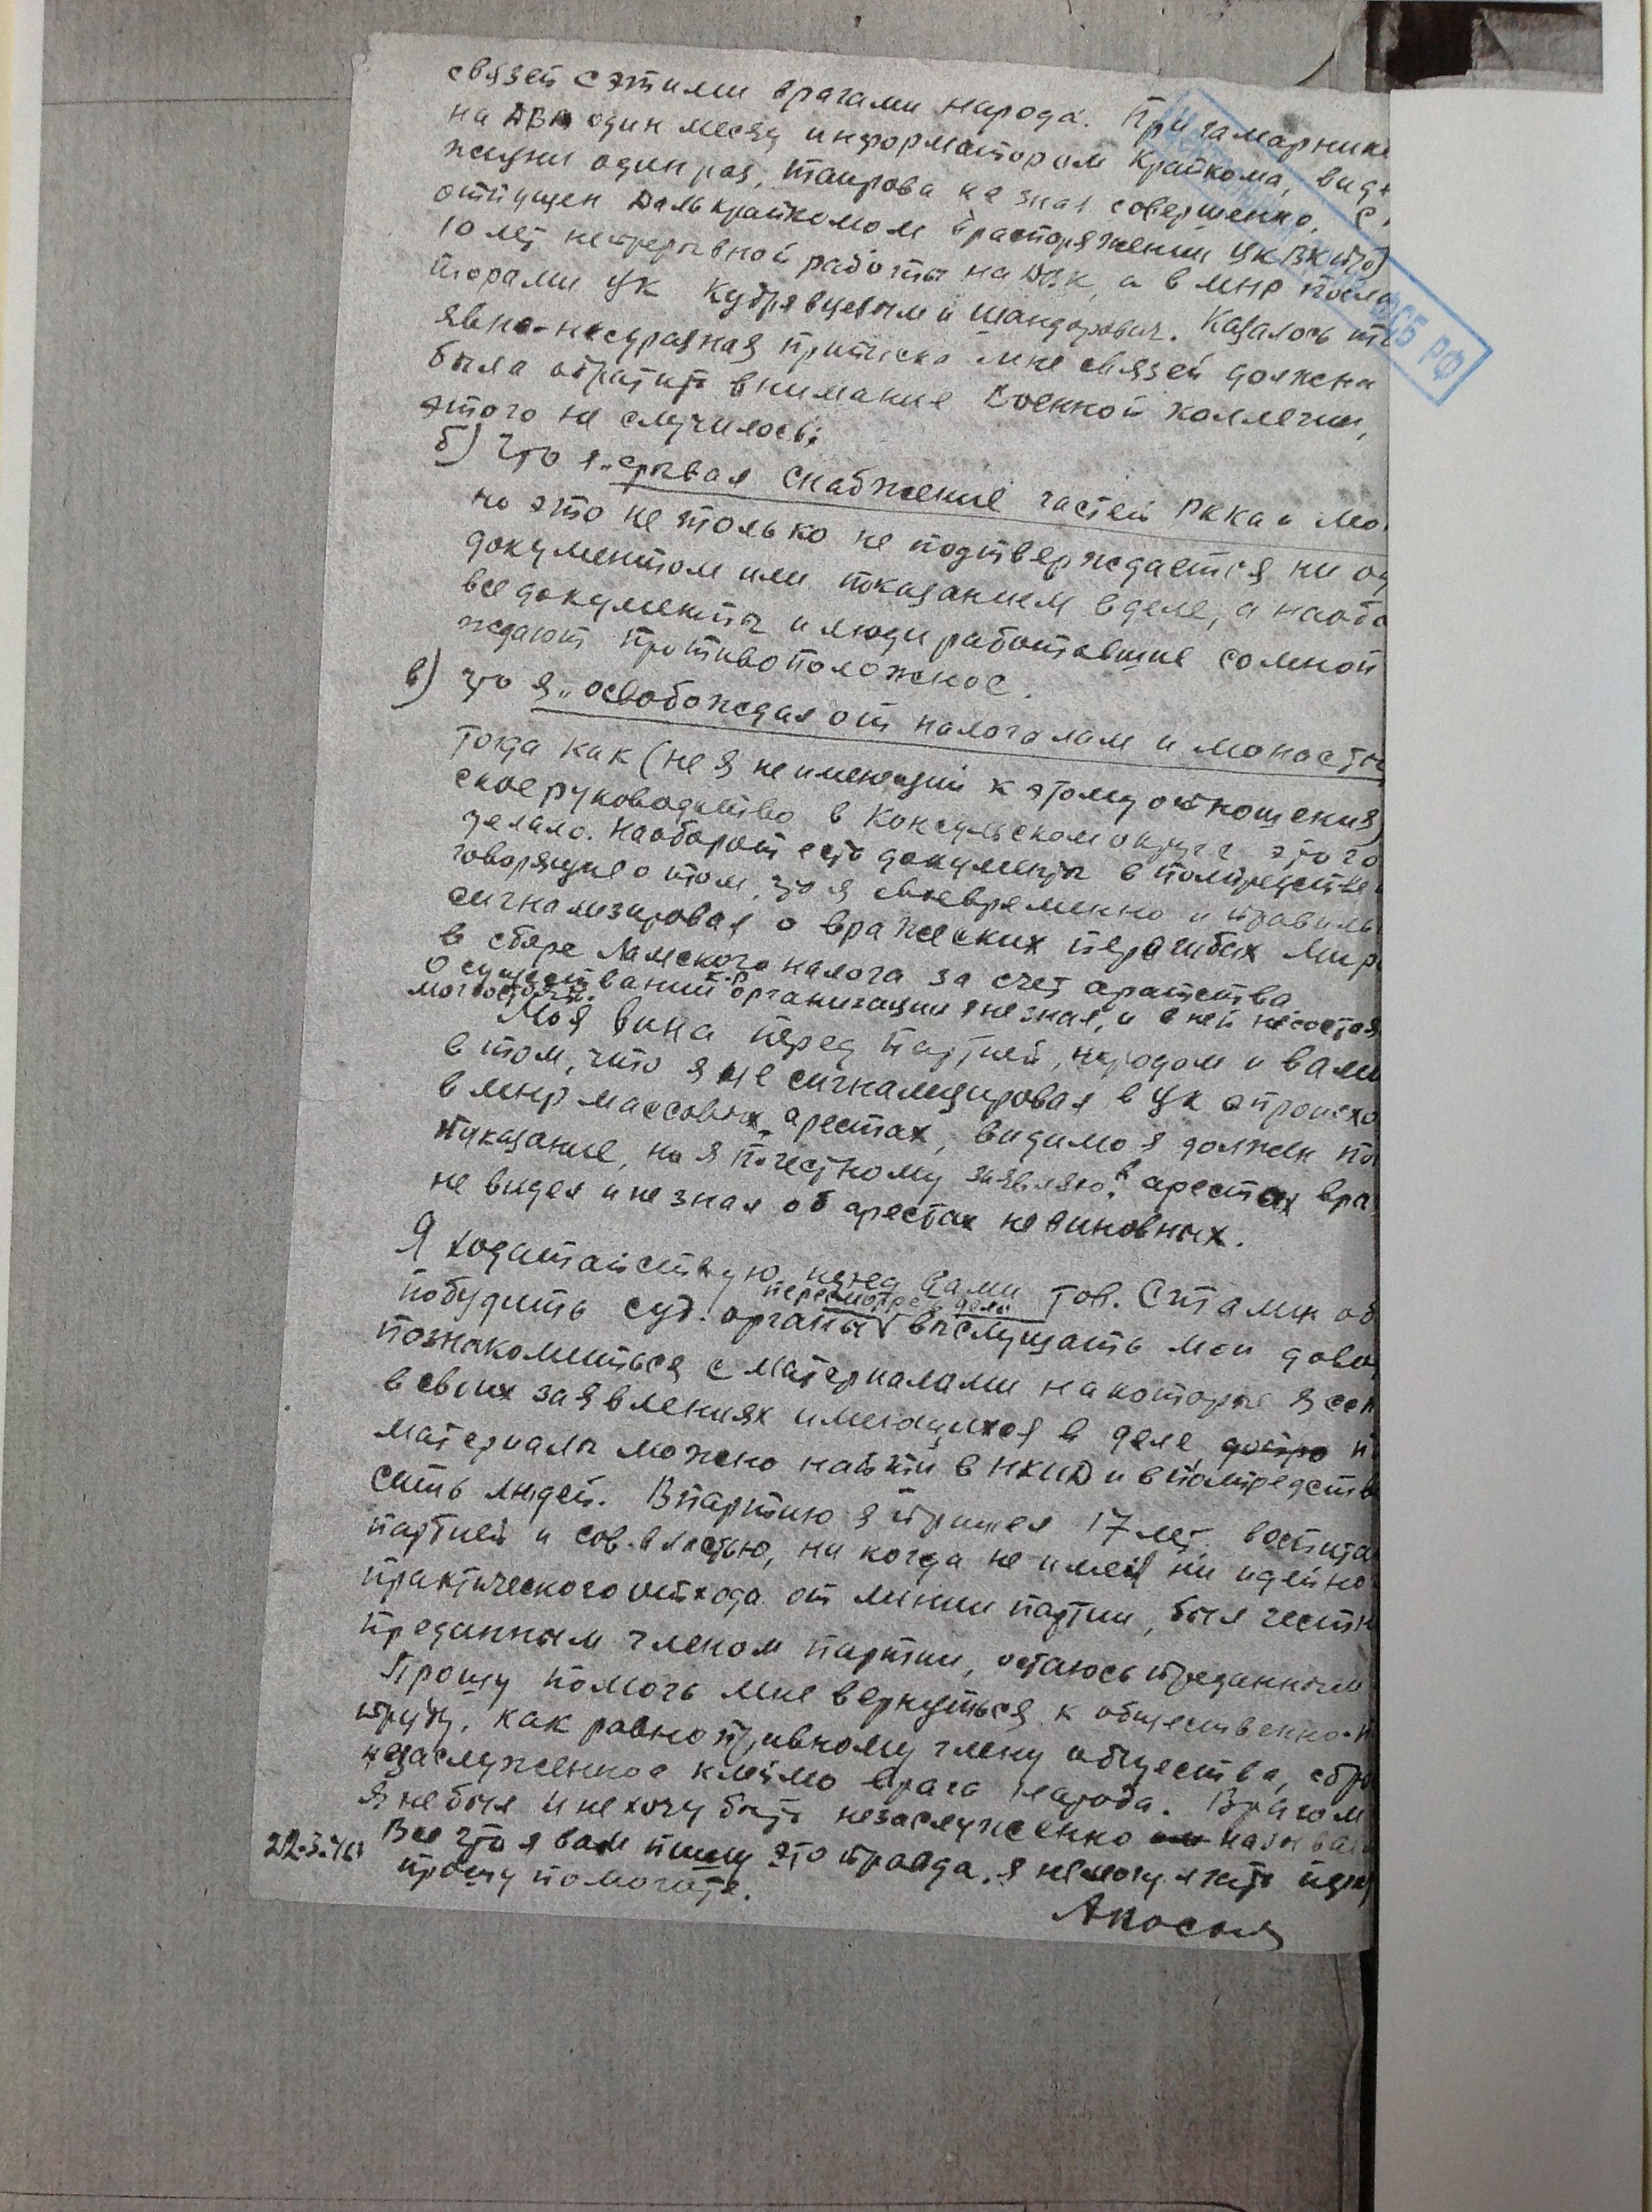 связей с этими врагами народа. При гамарнике
на ДВК один месяц информатором крайкома, виде
жизни один раз, таирова не знал совершенно. С
отпущен Далькрайкомом в распоряжении ЦК ВКП(б)
10 лет непрерывной работы на ДВК, а в МНР посла
торами ЦК Кудрявцевым и Шандорович. Казалось
явно-несуразная приписка мне связей должна
была обратить внимание Военной коллегии,
этого не случилось;
б) что я "срывал снабжение частей РККА и Мо
но это не только не подтверждается ни од
документом или показанием в деле, а наобо
все документы и люди работавшие со мной
ждают противоположное.
в) что я "освобождал от налога лам и монасты
Тогда как (не я не имеющий к этому отношения)
ское руководство в Консульском округе этого
делало. Наоборот есть документы в полпредстве
говорящие о том, что я своевременно и правиль
сигнализировал о вражеских перегибах Мир
в сборе Ламского налога за счет аратства
О существовании к.р. организации я не знал, и в ней не состоял
мог состоять.
Моя вина перед партией, народом и вами
в том, что я не сигнализировал в ЦК о происхо
в МНР массовых арестах, видимо я должен по
наказание, но я по честному заявляю: в арестах вра
не видел и не знал об арестах невиновных.
Я ходатайствую перед Вами тов. Сталин об
пересмотре дела
побудить суд. органы выслушать мои дово
познакомиться с материалами на которые я ссы
в своих заявлениях имеющихся в деле,
материалы можно найти в НКИД и в полпредств
сить людей. В партию я пришел 17 лет, воспита
партией и сов. властью, ни когда не имел ни идейно
практического отхода от линии партии, был честн
преданным членом партии, остаюсь преданным
Прошу помочь мне вернуться к общественно-п
труду, как равноправному члену общества, сбро
незаслуженное клеймо врага народа. Врагом
я не был и не хочу быть незаслуженно называ
22.3.40 Все что я вам пишу это правда, я не могу лгать
прошу помогите.